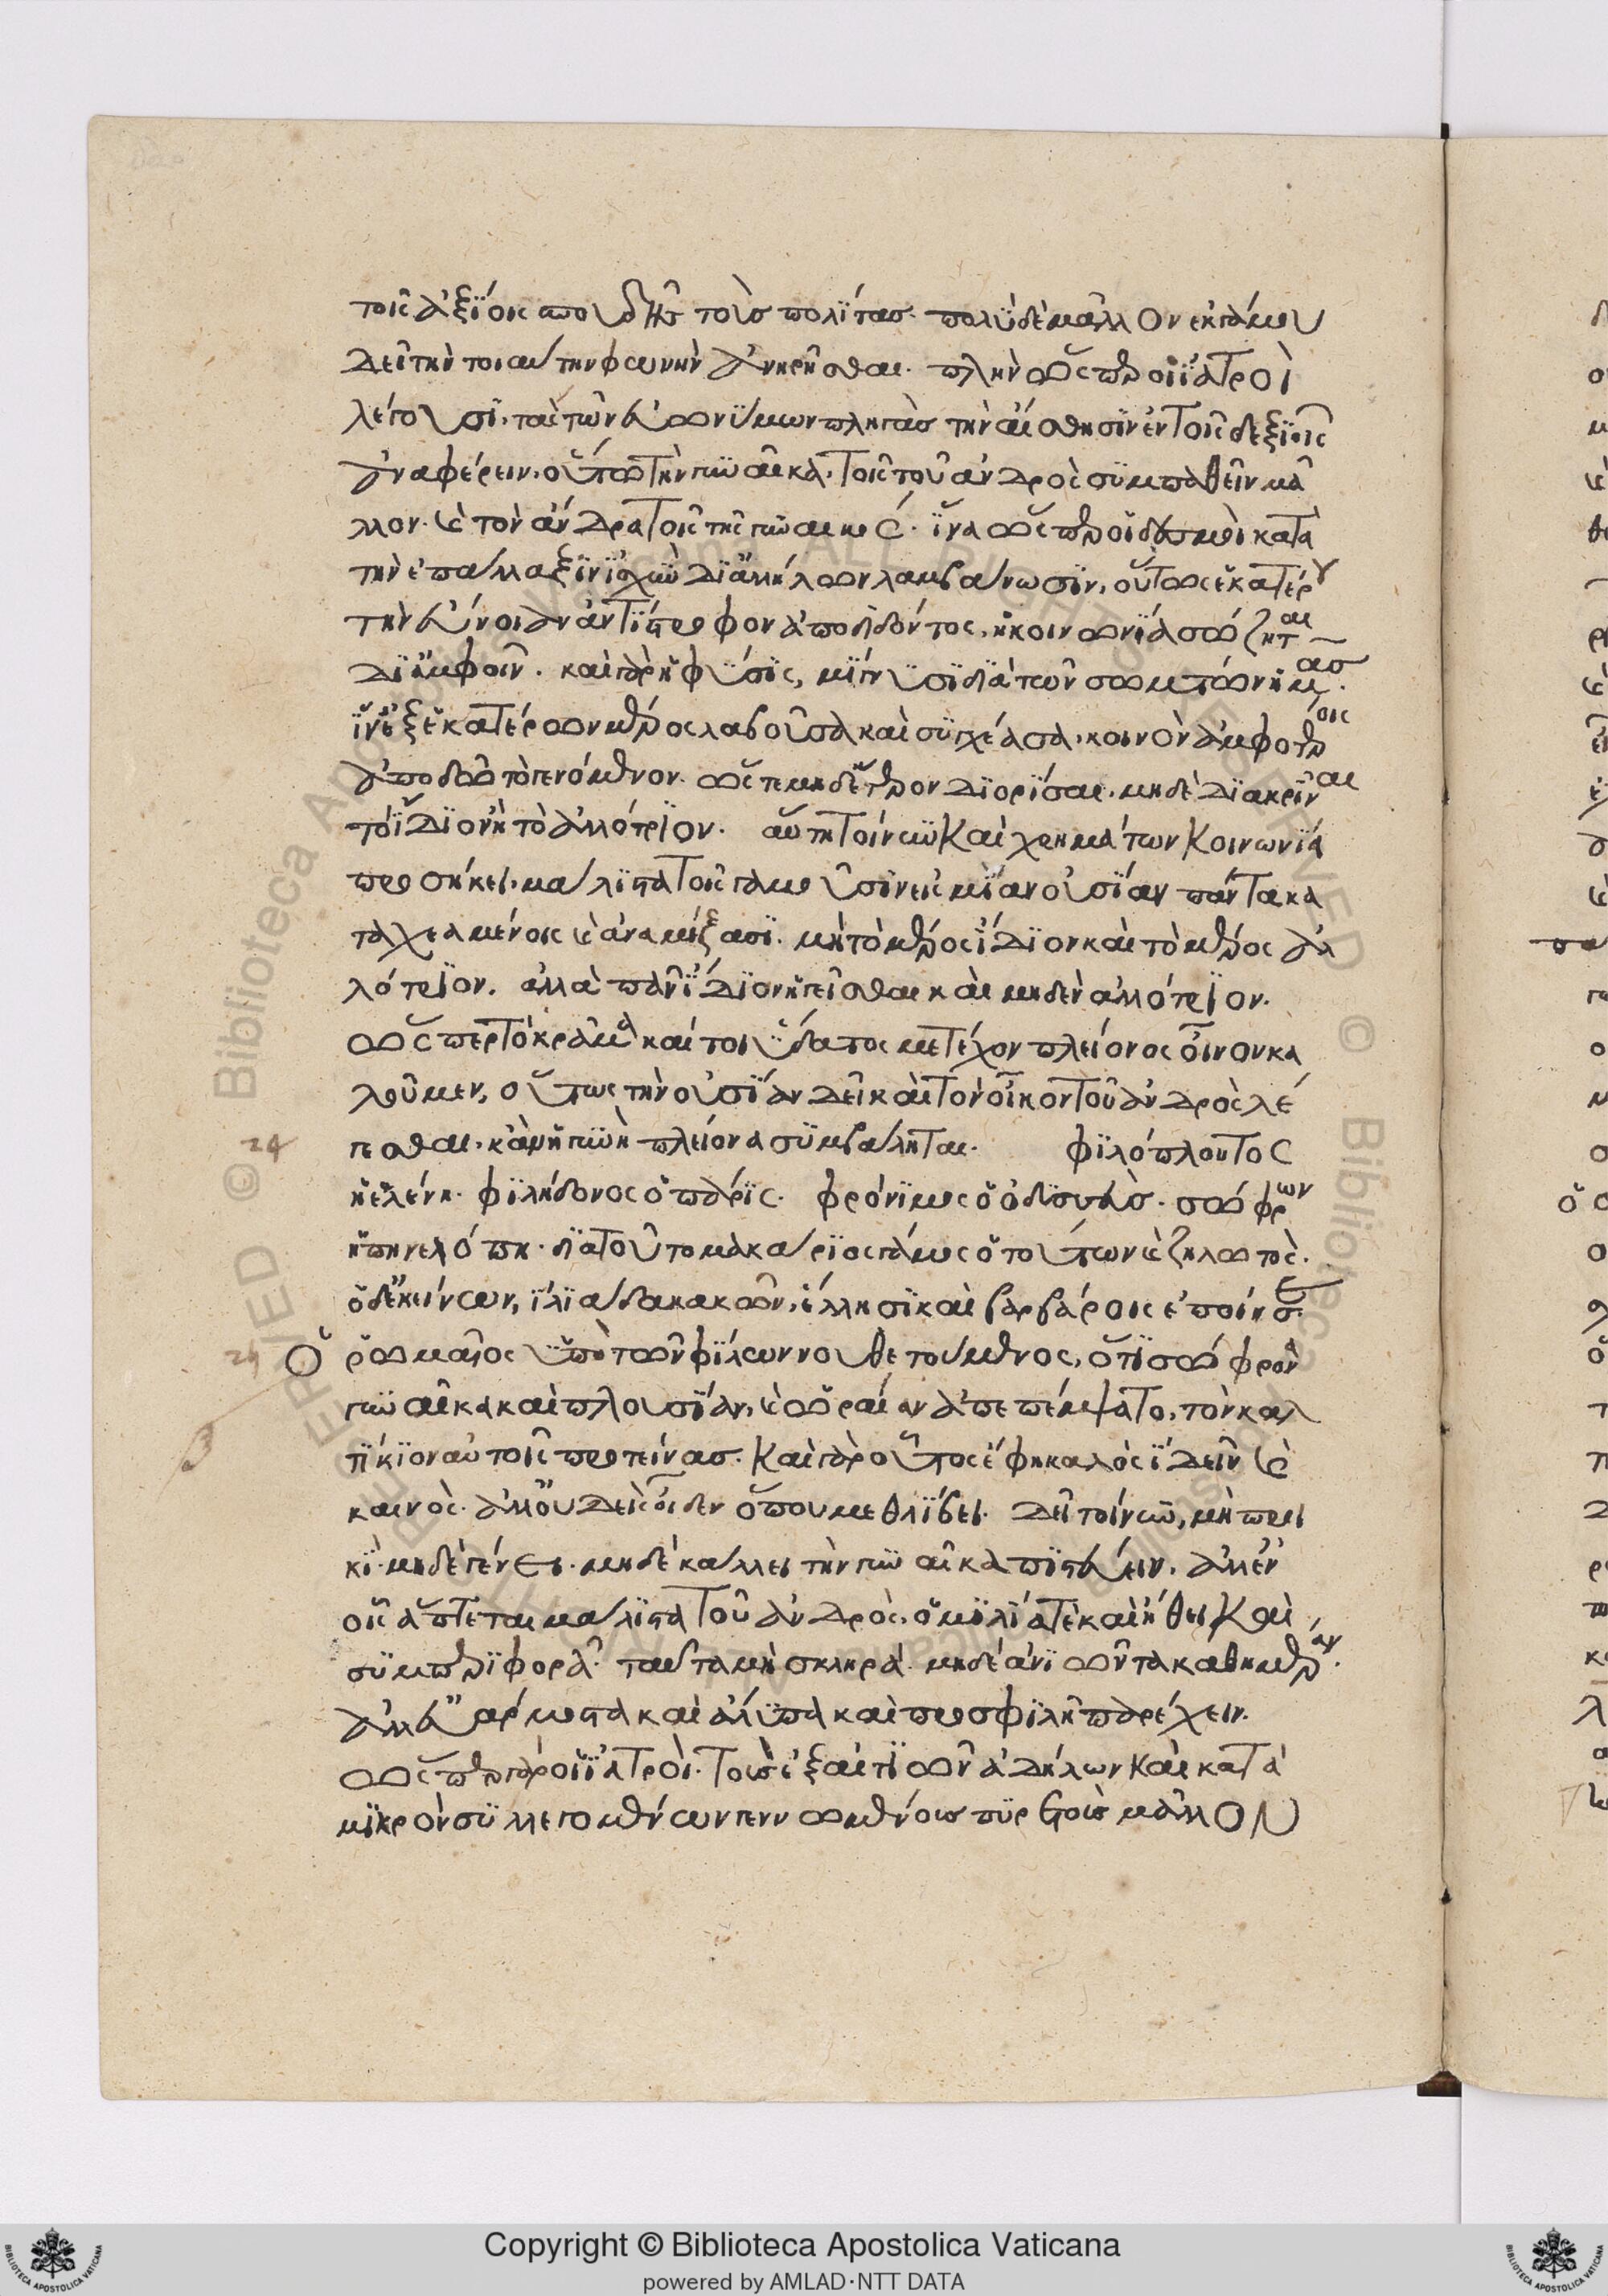 τοῖς ἀξίοις σπουδῆς τοὺς πολίτας. πολὺ δὲ μᾶλλον ἐκ γάμου
δεῖ τὴν τοιαύτην φωνὴν ἀνῃρῆσθαι. πλὴν ὥσπερ οἱ ἰατροὶ
λέγουσι, τὰς τῶν εὐωνύμων πληγὰς τὴν αἴσθησιν ἐν τοῖς δεξιοῖς
ἀναφέρειν. οὕτω τὴν γυναῖκα, τοῖς τοῦ ἀνδρὸς συμπαθεῖν μᾶ
λλον. καὶ τὸν ἄνδρα τοῖς τῆς γυναικός. ἵνα ὥσπερ οἱ δεσμοὶ κατὰ
τὴν ἐπάλλαξιν ἰσχὺν δι' ἀλλήλων λαμβάνωσιν, οὕτως ἑκατέρου
τὴν εὔνοιαν ἀντίστροφον ἀποδιδόντος, ἡ κοινωνία σώζηται
δι' ἀμφοῖν. καὶ γὰρ ἡ φύσις, μίγνυσι διὰ τῶν σωμάτων ἡμᾶς.
ἵν' ἐξ ἑκατέρων μέρος λαβοῦσα καὶ συγχέασα, κοινὸν ἀμφοτέροις
ἀποδῶ τὸ γενόμενον. ὥστε μηδέτερον διορίσαι. μηδὲ διακρῖναι
τὸ ἴδιον ἢ τὸ ἀλλότριον. αὕτη τοίνυν καὶ χρημάτων κοινωνία
προσήκει. μάλιστα τοῖς γαμοῦσιν εἰς μίαν οὐσίαν πάντα κα
ταχεαμένοις καὶ ἀναμίξασι. μὴ τὸ μέρος ἴδιον καὶ τὸ μέρος ἀλ
λότριον. ἀλλὰ πᾶν ἴδιον ἡγεῖσθαι καὶ μηδὲν ἀλλότριον.
ὥσπερ τὸ κρᾶμα καίτοι ὕδατος μετέχον πλείονος οἶνον κα
λοῦμεν, οὕτως τὴν οὐσίαν δεῖ καὶ τὸν οἶκον τοῦ ἀνδρὸς λέ
γεσθαι. κἂν ἡ γυνὴ πλείονα συμβάληται. φιλόπλουτος
24
ἡ ἑλένη. φιλήδονος ὁ πάρις. φρόνιμος ὁ ὀδυσσεὺς. σώφρων
ἡ πηνελόπη. διὰ τοῦτο μακάριος γάμος ὁ τούτων καὶ ζηλωτὸς.
ὁ δ' ἐκείνων, ἰλιάδα κακῶν, ἕλλησι καὶ βαρβάροις ἐποίησεν.
25 Ὁ ῥωμαῖος ὑπὸ τῶν φίλων νουθετούμενος, ὅτι σώφρονα
γυναῖκα καὶ πλουσίαν, καὶ ὡραίαν ἀπεπέμψατο, τὸν καλ
τίκιον αὐτοῖς προτείνας. καὶ γὰρ οὗτος ἔφη καλὸς ἰδεῖν καὶ
καινὸς. ἀλλ' οὐδεὶς οἶδεν ὅπου με θλίβει. δεῖ τοίνυν, μὴ προι
κὶ. μηδὲ γένει. μηδὲ κάλλει τὴν γυναῖκα πιστεύειν. ἀλλ' ἐν
οἷς ἅπτεται μάλιστα τοῦ ἀνδρὸς. ὁμιλίᾳ τε καὶ ἤθει καὶ
συμπεριφορᾶ. ταῦτα μὴ σκληρὰ. μηδ' ἀνιῶντα καθημέραν.
ἀλλ' εὐάρμοστα καὶ ἄλυπα καὶ προσφιλῆ παρέχειν.
ὥσπερ γὰρ οἱ ἰατροὶ. τοὺς ἐξ αἰτιῶν ἀδήλων καὶ κατὰ
μικρὸν συλλεγομένων γεννωμένους πυρετοὺς μᾶλλον
Copyright © Biblioteca Apostolica Vaticana
powered by AMLAD·NTT DATA